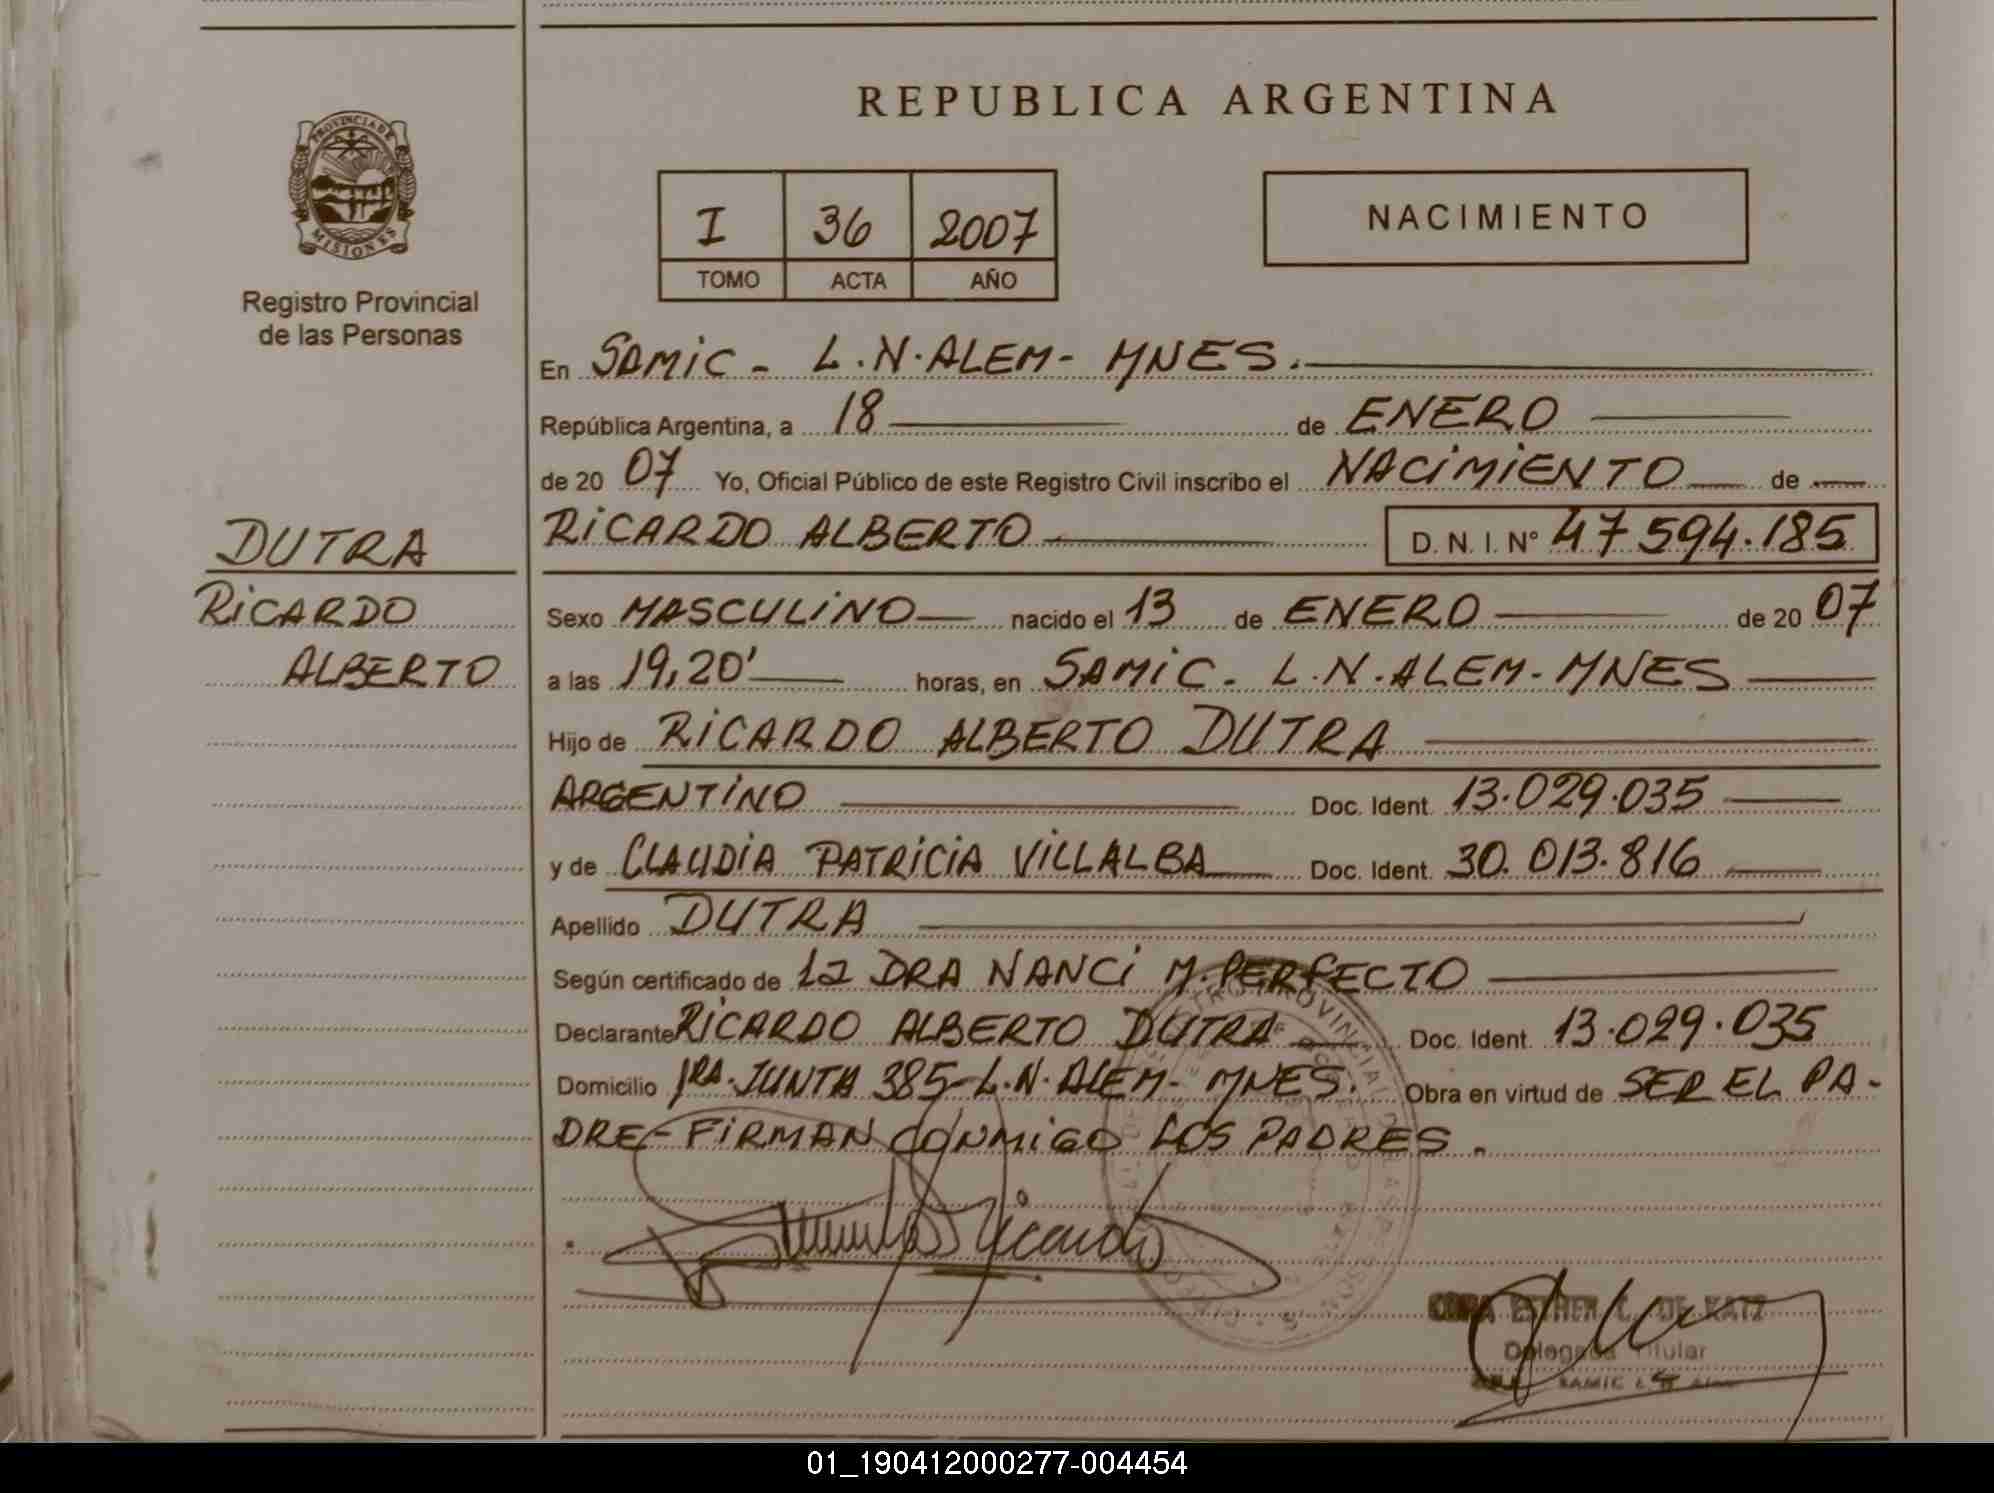 REPUBLICA ARGENTINA
PROVINCIA DE
MISIONES
Registro Provincial
de las Personas
I 36 2007
TOMO ACTA AÑO
NACIMIENTO
En SAMIC - L.N.ALEM - MNES.
República Argentina, a 18 de ENERO
de 20 07 Yo, Oficial Público de este Registro Civil inscribo el NACIMIENTO de
DUTRA
RICARDO
ALBERTO
RICARDO ALBERTO D. N. I. Nº 47 594.185
Sexo MASCULINO nacido el 13 de ENERO de 20 07
a las 19,20' horas, en SAMIC - L.N.ALEM - MNES
Hijo de RICARDO ALBERTO DUTRA
ARGENTINO Doc. Ident. 13.029.035
y de CLAUDIA PATRICIA VILLALBA Doc. Ident. 30.013.816
Apellido DUTRA
Según certificado de la DRA NANCI M. PERFECTO
Declarante RICARDO ALBERTO DUTRA Doc. Ident. 13.029.035
Domicilio 1RA. JUNTA 385 - L.N. ALEM - MNES. Obra en virtud de SER EL PA-
DRE - FIRMAN CONMIGO LOS PADRES.
Ricardo
ESTHER C. DE KATZ
Delegada Titular
SAMIC L N Alem
01_190412000277-004454